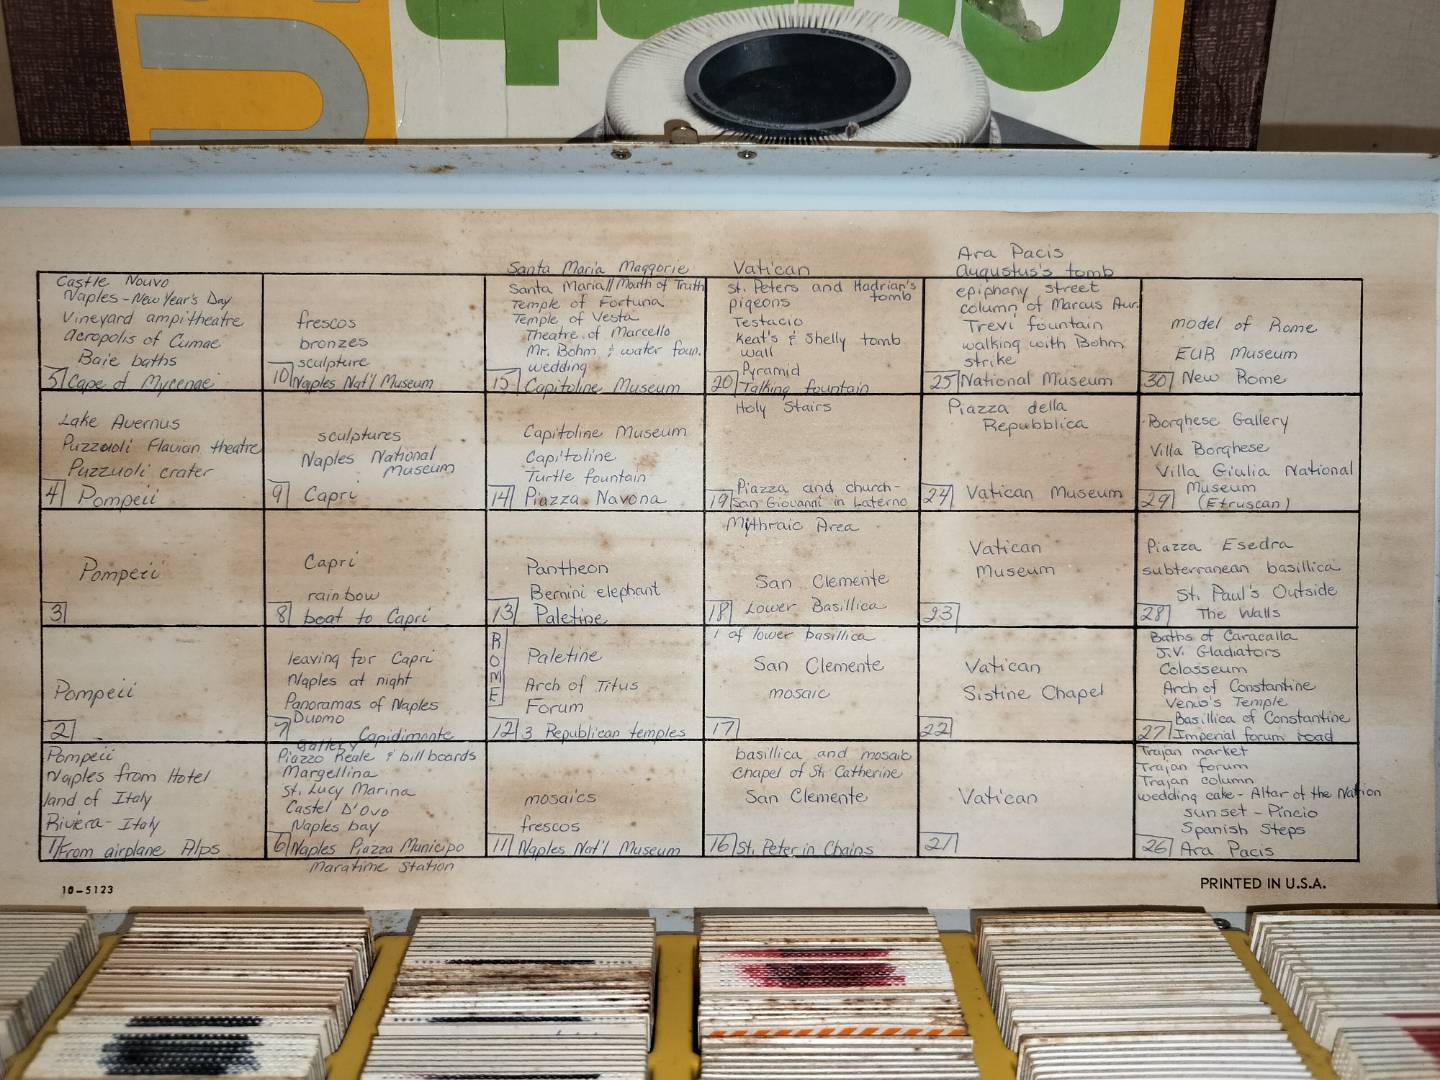 Castle Nouvo
Naples - New Year's Day
Vineyard ampitheatre
acropolis of Cumae
Baie baths
5 Cape of Mycenae
frescos
bronzes
sculpture
10 Naples Nat'l Museum
Santa Maria Maggorie
Santa Maria // Mouth of Truth
Temple of Fortuna
Temple of Vesta
Theatre of Marcello
Mr. Bohm & water foun.
wedding
15 Capitoline Museum
Vatican
St. Peters and Hadrian's
tomb
pigeons
Testacio
Keat's & Shelly tomb
wall
Pyramid
20 Talking fountain
Ara Pacis
Augustus's tomb
epiphany street
column of Marcus Aur.
Trevi fountain
walking with Bohm
strike
25 National Museum
model of Rome
EUR Museum
30 New Rome
Lake Avernus
Puzzuoli Flavian theatre
Puzzuoli crater
4 Pompeii
sculptures
Naples National
Museum
9 Capri
Capitoline Museum
Capitoline
Turtle fountain
14 Piazza Navona
Holy Stairs
Piazza and church-
19 San Giovanni in Laterno
Piazza della
Repubblica
24 Vatican Museum
Borghese Gallery
Villa Borghese
Villa Giulia National
Museum
29 (Etruscan)
Pompeii
3
Capri
rainbow
8 boat to Capri
Pantheon
Bernini elephant
13 Paletine
Mithraic Area
San Clemente
18 Lower Basillica
Vatican
Museum
23
Piazza Esedra
subterranean basillica
St. Paul's Outside
28 The Walls
Pompeii
2
leaving for Capri
Naples at night
Panoramas of Naples
Duomo
7 Capidimonte
Gallery
ROME
Paletine
Arch of Titus
Forum
12 3 Republican temples
1 of lower basillica
San Clemente
mosaic
17
Vatican
Sistine Chapel
22
Baths of Caracalla
J.V. Gladiators
Colosseum
Arch of Constantine
Venus's Temple
Basillica of Constantine
27 Imperial forum road
Pompeii
Naples from Hotel
land of Italy
Riviera - Italy
1 From airplane Alps
Piazzo Reale & billboards
Margellina
St. Lucy Marina
Castel D'Ovo
Naples bay
6 Naples Piazza Municipo
Maratime Station
mosaics
frescos
11 Naples Nat'l Museum
basillica and mosaic
chapel of St. Catherine
San Clemente
16 St. Peter in Chains
Vatican
21
Trajan market
Trajan forum
Trajan column
wedding cake - Altar of the Nation
sunset - Pincio
Spanish Steps
26 Ara Pacis
10-5123
PRINTED IN U.S.A.